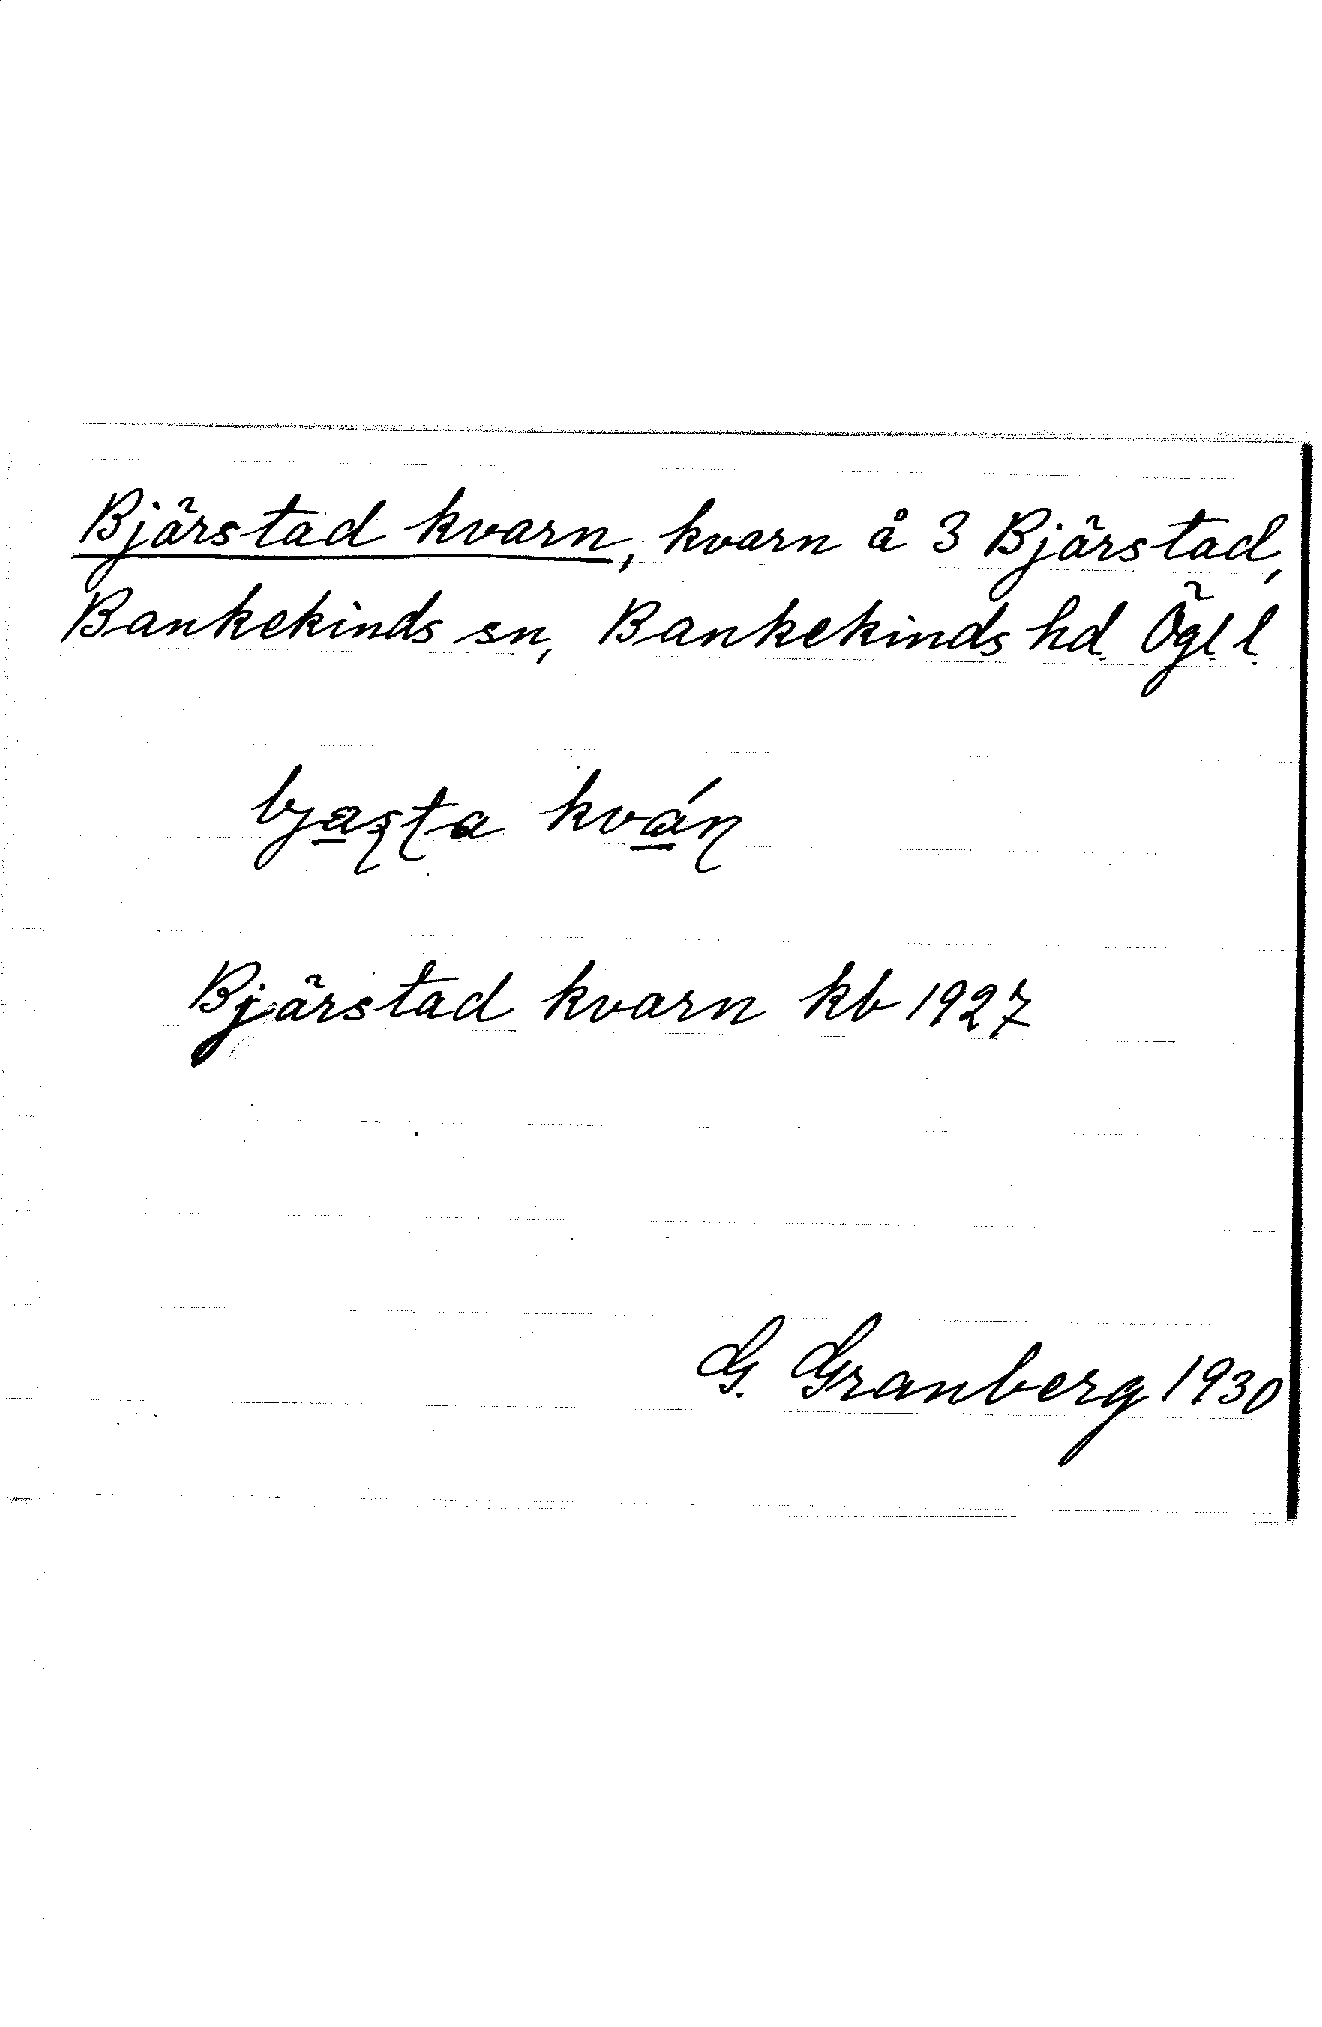 Bjärstad kvarn, kvarn å 3 Bjärstad,
Bankekinds sn, Bankekinds hd. Ögl. l.
bja̲ʂʈa kvá̲ɳ
Bjärstad kvarn kb 1927
G. Granberg 1930